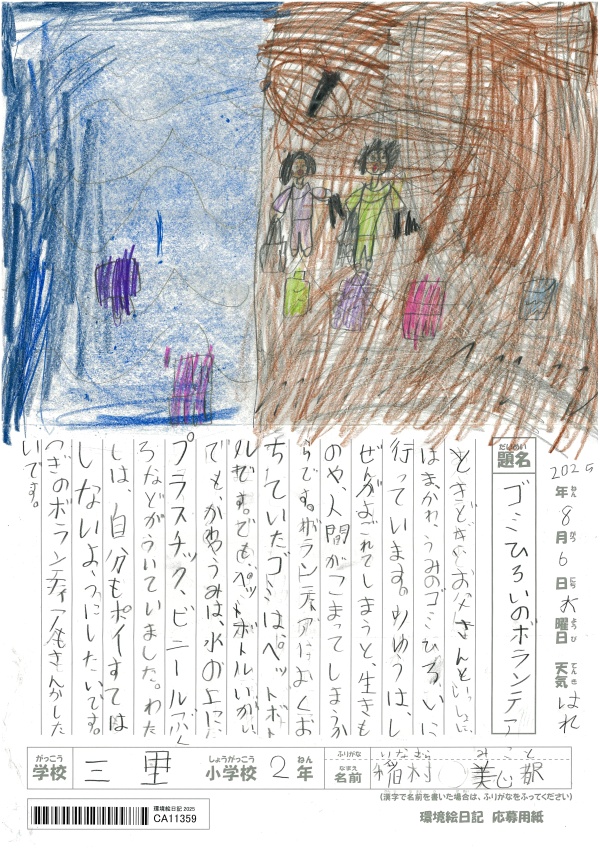 2025年8月6日水曜日 天気はれ
ねん がつ にち ようび てんき
だいめい
題名
ゴミひろいのボランテア
ときどきお父さんといっしょに
はまかわ、うみのゴミひろいに
行っています。りゆうは、し
ぜんがよごれてしまうと、生きも
のや、人間がこまってしまうか
らです。ボランティアはよくお
ちていたゴミは、ペットボト
ルです。でも、ペットボトルいがい
でも、かわやうみは、水の上に
プラスチック、ビニールぶく
ろなどがういていました。わた
しは、自分もポイすては
しないようにしたいです。
つぎのボランティアもさんかした
いです。
がっこう
学校
三里
しょうがっこう
小学校
2
ねん
年
ふりがな
なまえ
名前
いなむら みこと
稲村 美心都
(漢字で名前を書いた場合は、ふりがなをふってください)
環境絵日記 2025
CA11359
環境絵日記 応募用紙